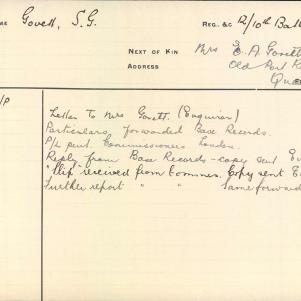 ME Govett, S.G. REG. &C 12/10th Batt
NEXT OF KIN Mrs E. A. Govett
ADDRESS Old Port R
Que
/P
Letter to Mrs. Govett. (Enquirer)
Particulars, forwarded Base Records.
P/c sent Commissioners London.
Reply from Base Records - copy sent E
"Slip" received from Commsns. Copy sent E
Further report " " same forward